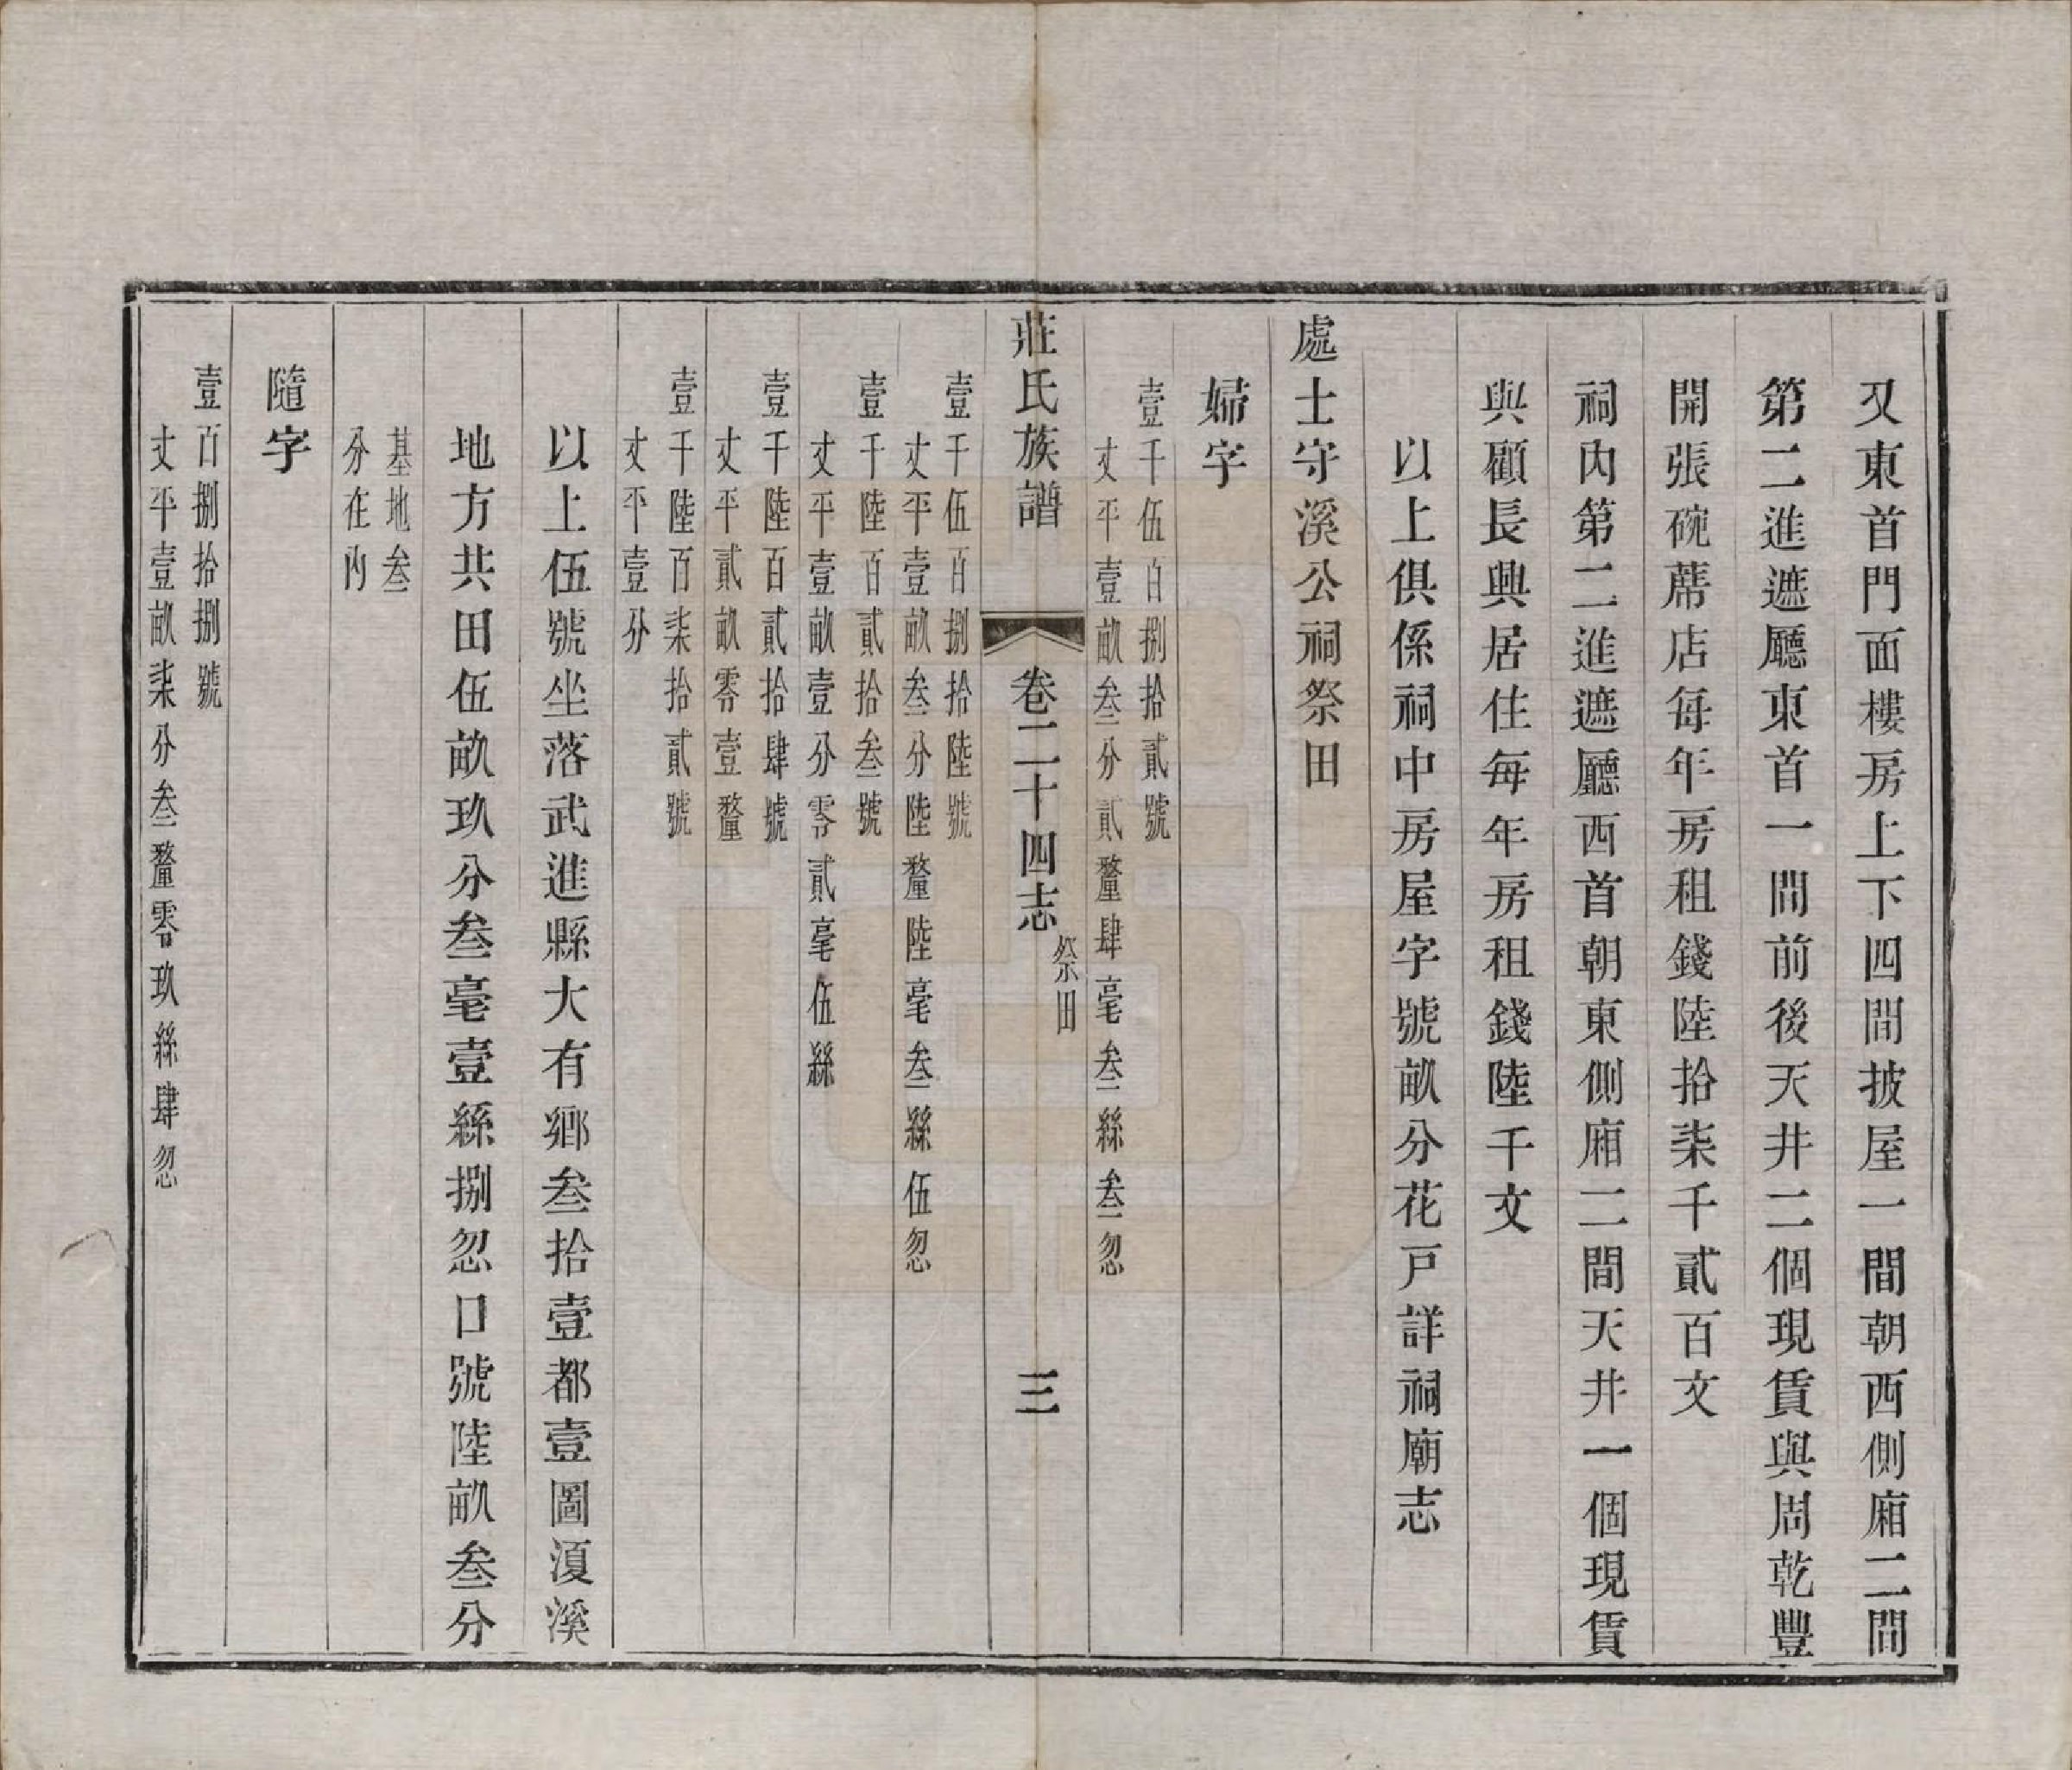 又東首門面樓房上下四間披屋一間朝西側廂二間
第二進遮廳東首一間前後天井二個現賃與周乾豐
開張碗蓆店每年房租錢陸拾柒千貳百文
祠內第二進遮廳西首朝東側廂二間天井一個現賃
與顧長興居住每年房租錢陸千文
以上俱係祠中房屋字號畝分花戸詳祠廟志
處士守溪公祠祭田
婦字
壹千伍百捌拾貳號
丈平壹畝叁分貳釐肆毫叁絲叁忽
莊氏族譜 卷二十四志 祭田 三
壹千伍百捌拾陸號
丈平壹畝叁分陸釐陸毫叁絲伍忽
壹千陸百貳拾叁號
丈平壹畝壹分零貳毫伍絲
壹千陸百貳拾肆號
丈平貳畝零壹釐
壹千陸百柒拾貳號
丈平壹分
以上伍號坐落武進縣大有鄉叁拾壹都壹圖湲溪
地方共田伍畝玖分叁毫壹絲捌忽口號陸畝叁分
基地叁
分在內
隨字
壹百捌拾捌號
丈平壹畝柒分叁釐零玖絲肆忽